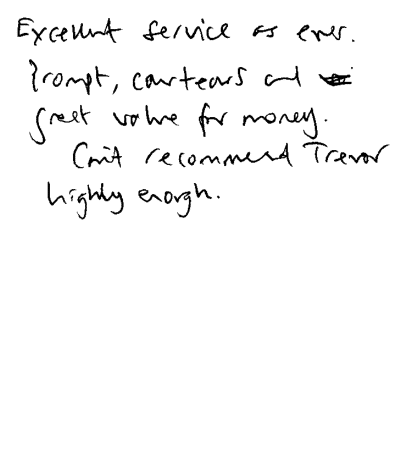 Excellent service as ever.
Prompt, courteous and
great value for money.
Can't recommend Trevor
highly enough.